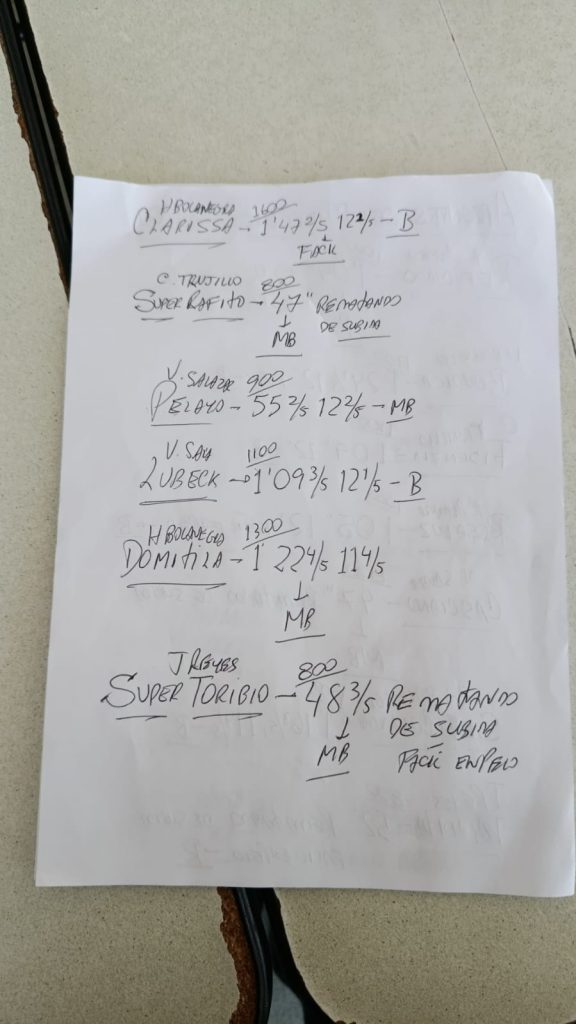 H BOCANEGRA 1600
CLARISSA - 1'47 2/5 12 2/5 - B
FACIL
C. TRUJILLO 800
SUPER RAFITO - 47" REMATANDO
DE SUBIDA
MB
V. SALAZAR 900
PELAYO - 55 2/5 12 2/5 - MB
V. SALA 1100
LUBECK - 1'09 3/5 12 1/5 - B
H BOCANEGRA 1300
DOMITILA - 1' 22 4/5 11 4/5
MB
J REYES 800
SUPER TORIBIO - 48 3/5 REMATANDO
DE SUBIDA
MB FACIL EN PELO